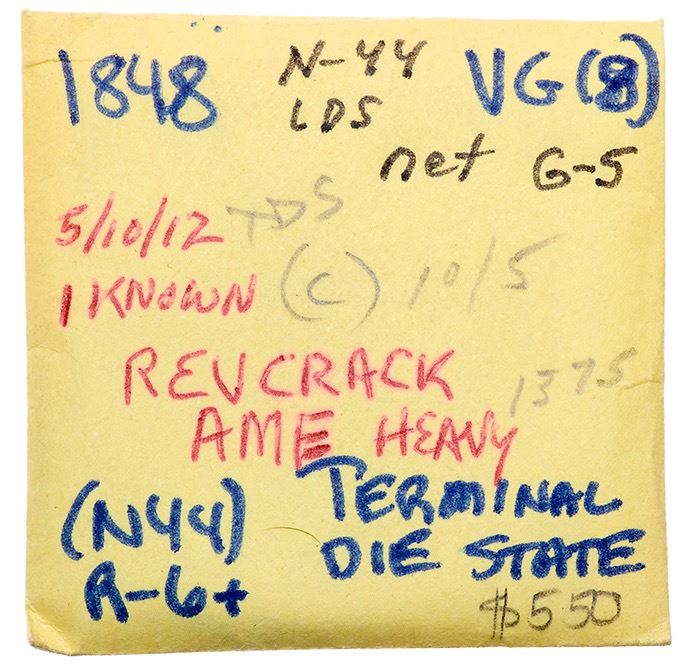 1848 N-44 VG(8)
LDS
net G-5
5/10/12 TDS
1 KNOWN (C) 10/5
REV CRACK 1375
AME HEAVY
(N44) TERMINAL
R-6+ DIE STATE
$550